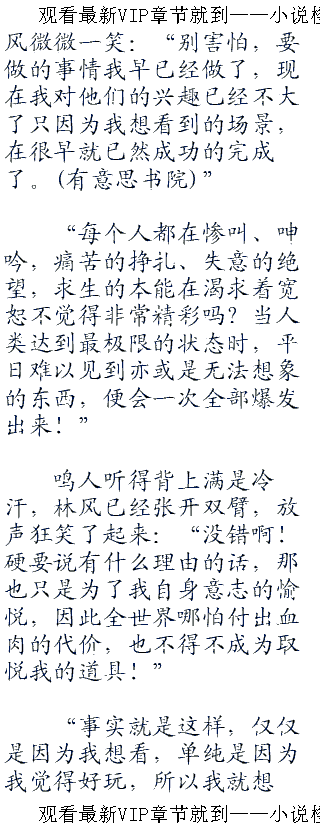 观看最新VIP章节就到——小说检
风微微一笑：“别害怕，要
做的事情我早已经做了，现
在我对他们的兴趣已经不大
了只因为我想看到的场景，
在很早就已然成功的完成
了。(有意思书院)”
“每个人都在惨叫、呻
吟，痛苦的挣扎、失意的绝
望，求生的本能在渴求着宽
恕不觉得非常精彩吗？当人
类达到最极限的状态时，平
日难以见到亦或是无法想象
的东西，便会一次全部爆发
出来！”
鸣人听得背上满是冷
汗，林风已经张开双臂，放
声狂笑了起来：“没错啊！
硬要说有什么理由的话，那
也只是为了我自身意志的愉
悦，因此全世界哪怕付出血
肉的代价，也不得不成为取
悦我的道具！”
“事实就是这样，仅仅
是因为我想看，单纯是因为
我觉得好玩，所以我就想
观看最新VIP章节就到——小说检